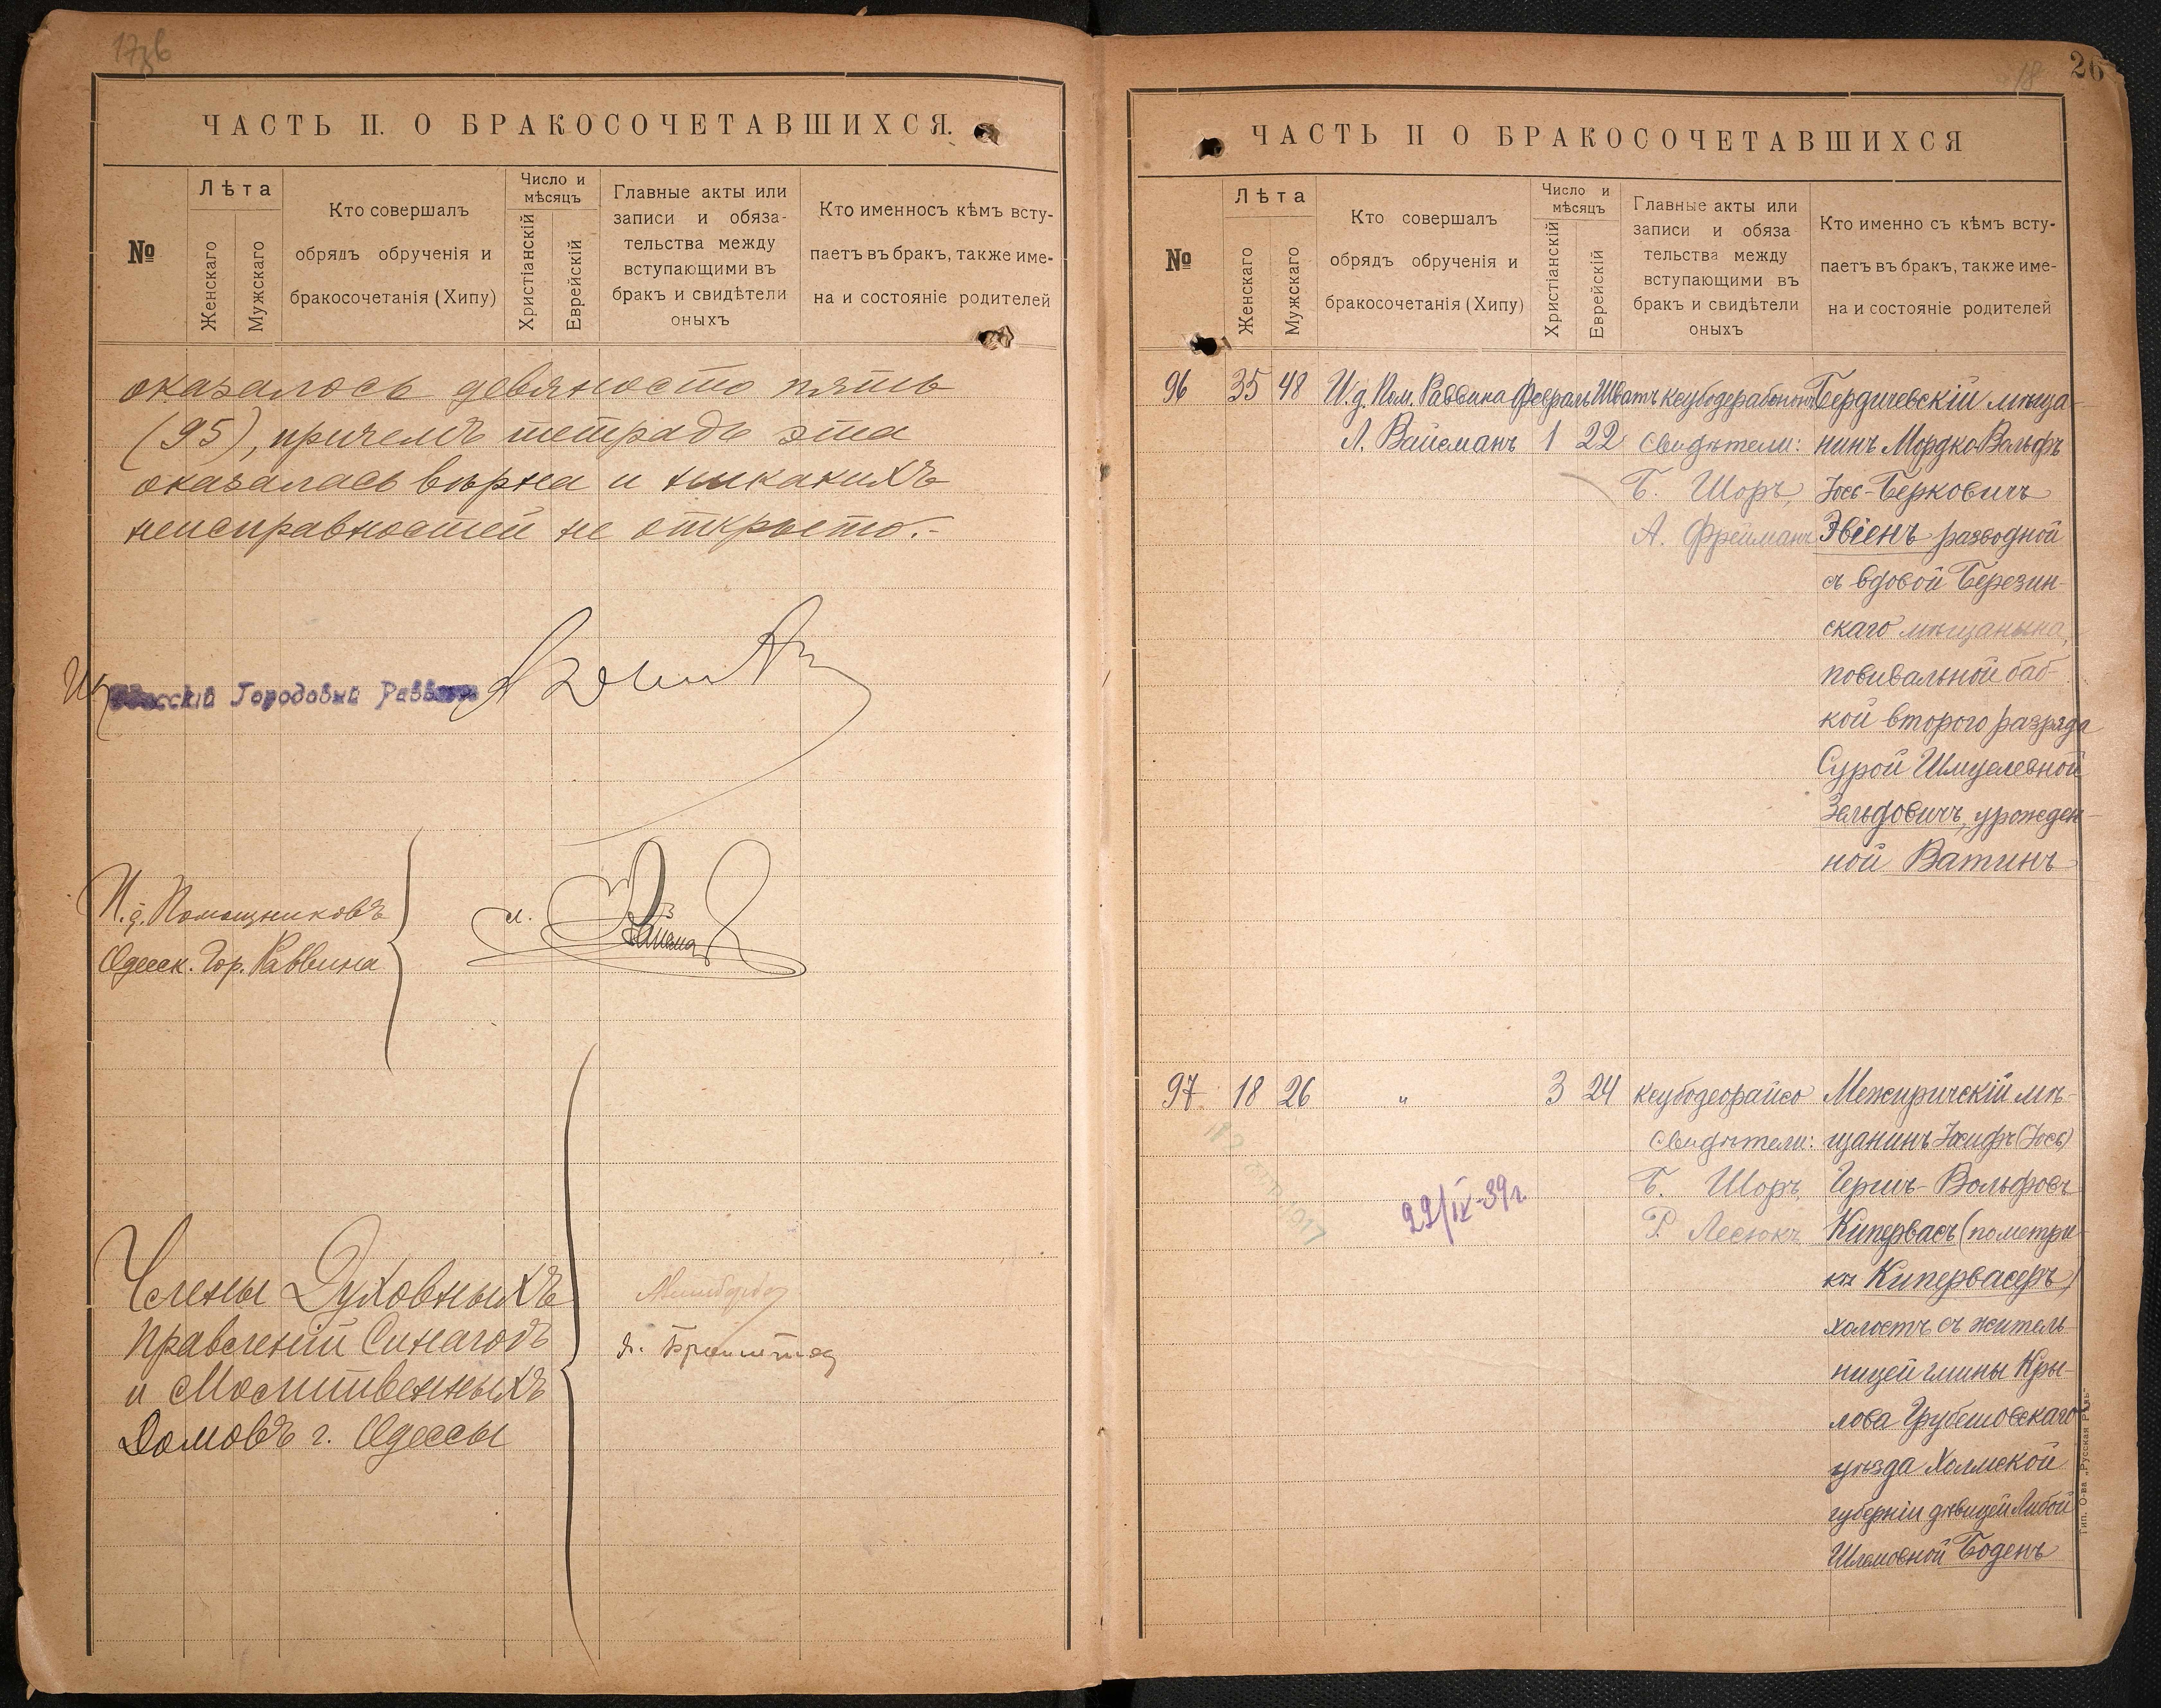 ЧАСТЬ II. О БРАКОСОЧЕТАВШИХСЯ.
№
Лѣта
Женскаго
Мужскаго
Кто совершалъ
обрядъ обрученія и
бракосочетанія (Хипу)
Число и
мѣсяцъ
Христіанскій
Еврейскій
Главные акты или
записи и обяза-
тельства между
вступающими въ
бракъ и свидѣтели
оныхъ
Кто именносъ кѣмъ всту-
паетъ въ бракъ, также име-
на и состояніе родителей
оказалось девяносто пять
(95), причемъ тетрадь эта
оказалась вѣрна и никакихъ
неисправностей не открыто.-
Городовый
И.д. Помощниковъ
Одесск. Гор. Раввина
Члены Духовныхъ
Правленій Синагогъ
и Молитвенныхъ
Домовъ г. Одессы
26
18
ЧАСТЬ II О БРАКОСОЧЕТАВШИХСЯ
№
Лѣта
Женскаго
Мужскаго
Кто совершалъ
обрядъ обрученія и
бракосочетанія (Хипу)
Число и
мѣсяцъ
Христіанскій
Еврейскій
Главные акты или
записи и обяза
тельства между
вступающими въ
бракъ и свидѣтели
оныхъ
Кто именно съ кѣмъ всту-
паетъ въ бракъ, также име-
на и состояніе родителей
96 35 48 И.д. Пом. Раввина Февраль Шватъ Бердичевскій мѣща-
Л. Вайсманъ 1 22 Свидѣтели: нинъ Мордко Вольфъ
Б. Шоръ, Іось-Берковичъ
А. Фрейманъ Эвіенъ разводной
съ вдовой Березин-
скаго мѣщанина,
повивальной баб-
кой второго разряда
Сурой Шмулевной
Зельдовичъ, урожден-
ной Ватинъ
97 18 26 " 3 24 ксубодеорайсо Межиричскій мѣ-
Свидѣтели: щанинъ Іосифъ (Іось)
Б. Шоръ, Гершъ-Вольфовъ
Р. Лесюкъ Кипервасъ (по метри-
кѣ Кипервасеръ)
холостъ съ житель-
ницей гмины Кры-
лова Грубешовскаго
уѣзда Холмской
губерніи дѣвицей Либой
Шлемовной Боденъ
22/IX-39г.
Тип. О-ва „Русская Рѣчь“